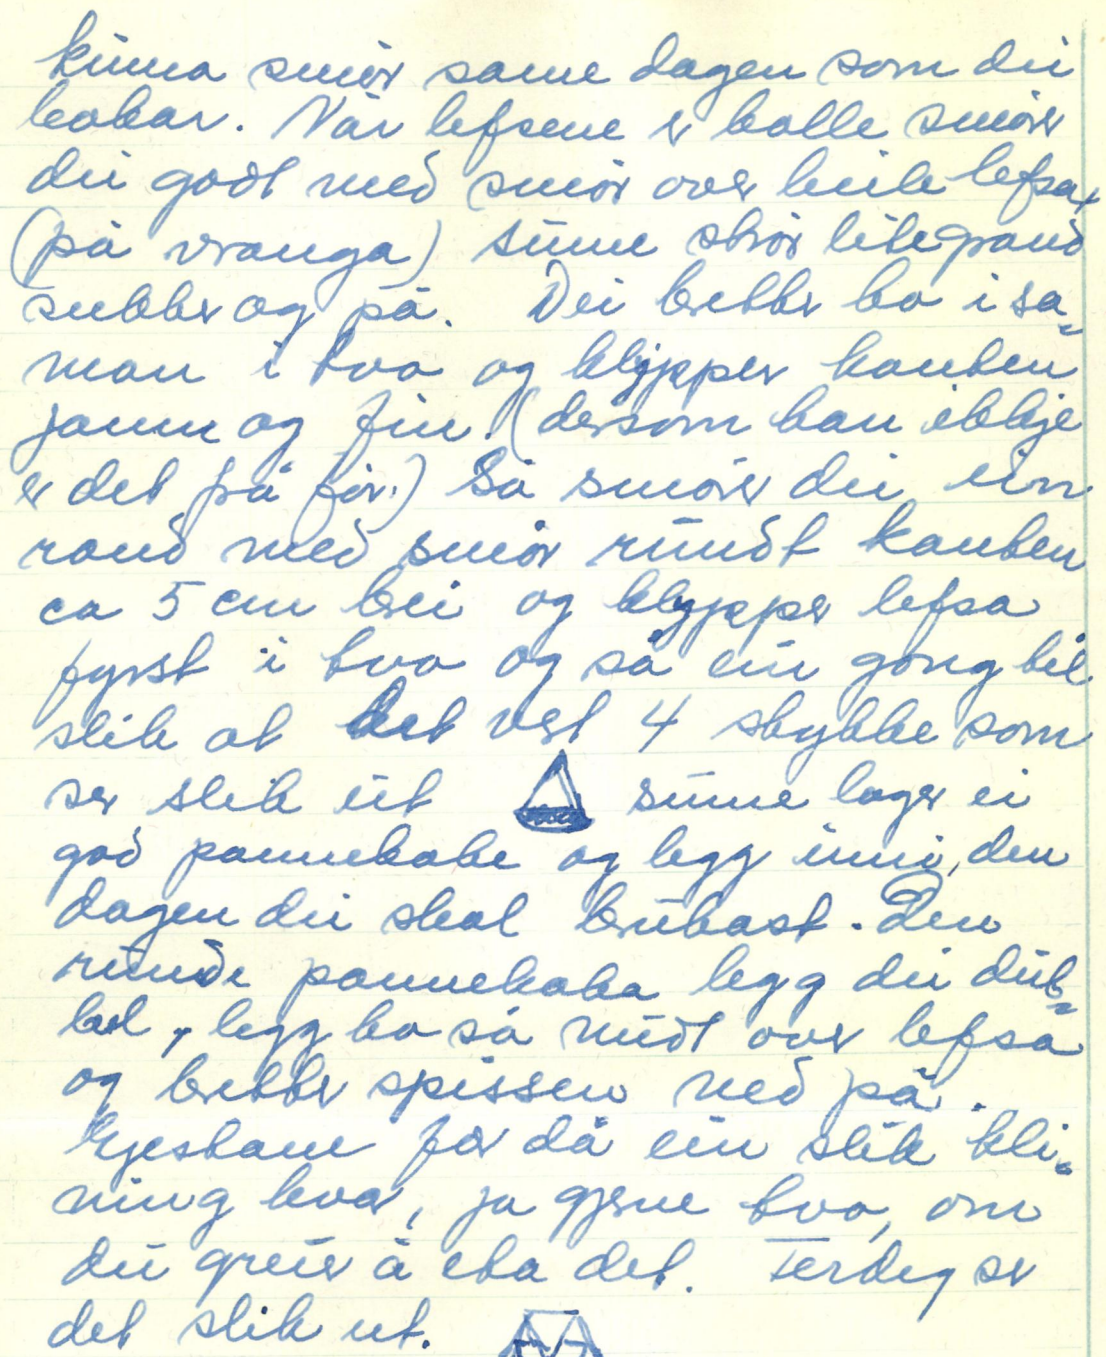 kinna smør same dagen som du
bakar. Når lefsene er kalle smører
du godt med smør over heile lefsa,
(på vranga) sume strør litegrand
sukker og på. Dei bretter ho i sa-
man i tvo og klypper kanten
jamn og fin. (dersom han ikkje
er det frå før.) Så smører du ein
rand med smør rundt kanten
ca 5 cm brei og klypper lefsa
fyrst i tvo og så ein gong til
slik at det vert 4 stykke som
ser slik ut sume lager ei
god pannekake og legg inni, den
dagen du skal brukast. Den
runde pannekaka legg du dub-
bel, legg ho så midt over lefsa
og bretter spissen ned på.
Gjestane får då ein slik kli-
ning kvar, ja gjerne tvo, om
du greier å eta det. Ferdig ser
det slik ut.